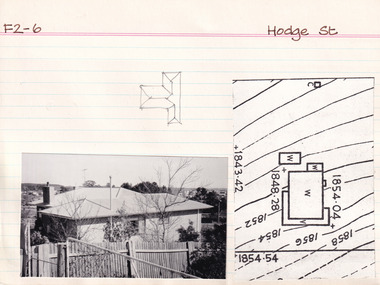 F2-6 Hodge St
W
W
W
V
+1843·42
+1848·28
1854·04
1852
1854
1856
1858
1854·54